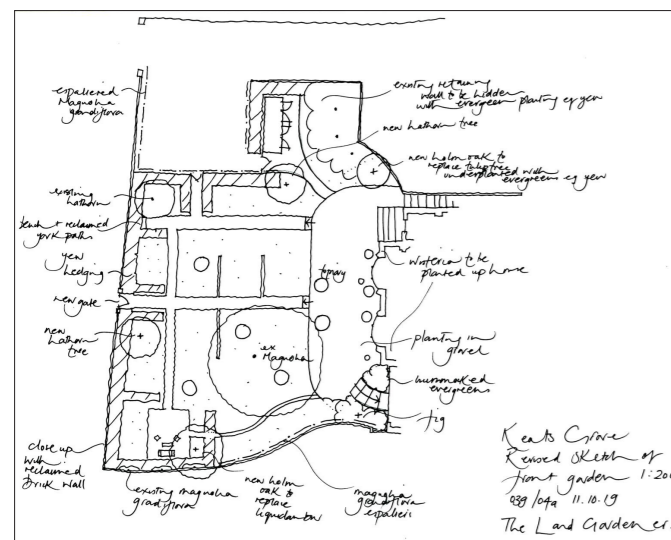 espaliered
Magnolia
grandiflora
existing retaining
wall to be hidden
with evergreen planting eg yew
new hathorn tree
new holm oak to
replace tulip tree
underplanted with
evergreens eg yew
existing
hathorn
bench + reclaimed
york paths
yew
hedging
new gate
new
hathorn
tree
topiary
wisteria to be
planted up house
planting in
gravel
ex
Magnolia
hummocked
evergreens
fig
close up
with
reclaimed
brick wall
existing magnolia
grandiflora
new holm
oak to
replace
liquidambar
magnolia
grandiflora
espaliers
Keats Grove
Revised Sketch of
front garden 1:200
039/04a 11.10.19
The Land Gardeners